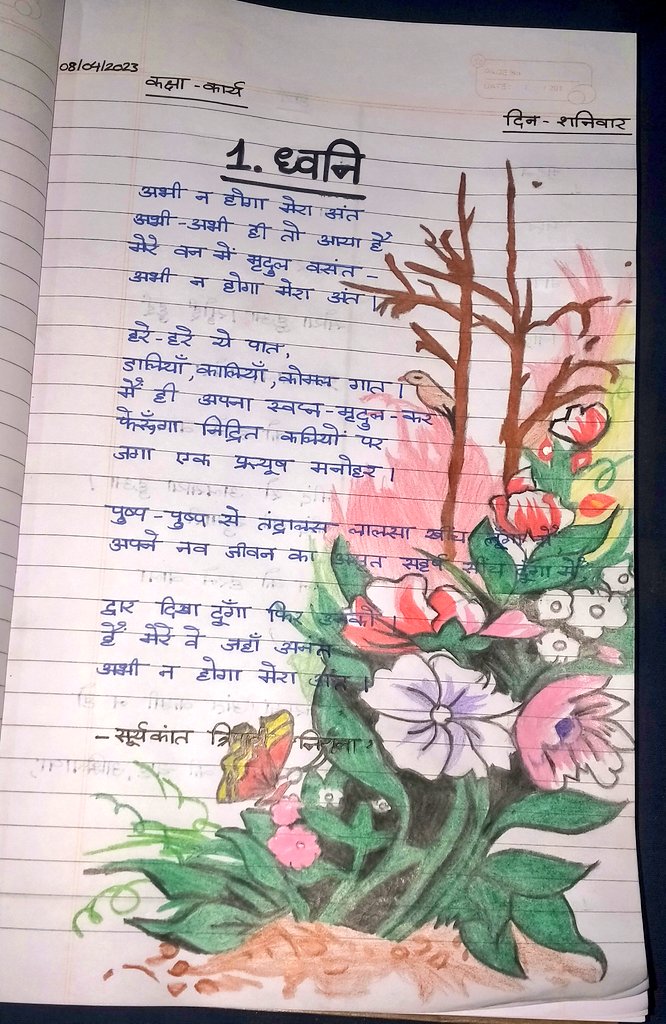 08/04/2023
कक्षा - कार्य
दिन - शनिवार
1. ध्वनि
अभी न होगा मेरा अंत
अभी-अभी ही तो आया है
मेरे वन में मृदुल वसंत -
अभी न होगा मेरा अंत।
हरे-हरे ये पात,
डालियाँ, कालियाँ, कोमल गात।
मैं ही अपना स्वप्न-मृदुल-कर
फेरूँगा निद्रित कलियों पर
जगा एक प्रत्यूष मनोहर।
पुष्प-पुष्प से तंद्रालस लालसा खींच लूँगा मैं,
अपने नव जीवन का अमृत सहर्ष सींच दूँगा मैं,
द्वार दिखा दूँगा फिर उनको।
हैं मेरे वे जहाँ अनंत
अभी न होगा मेरा अंत।
- सूर्यकांत त्रिपाठी निराला